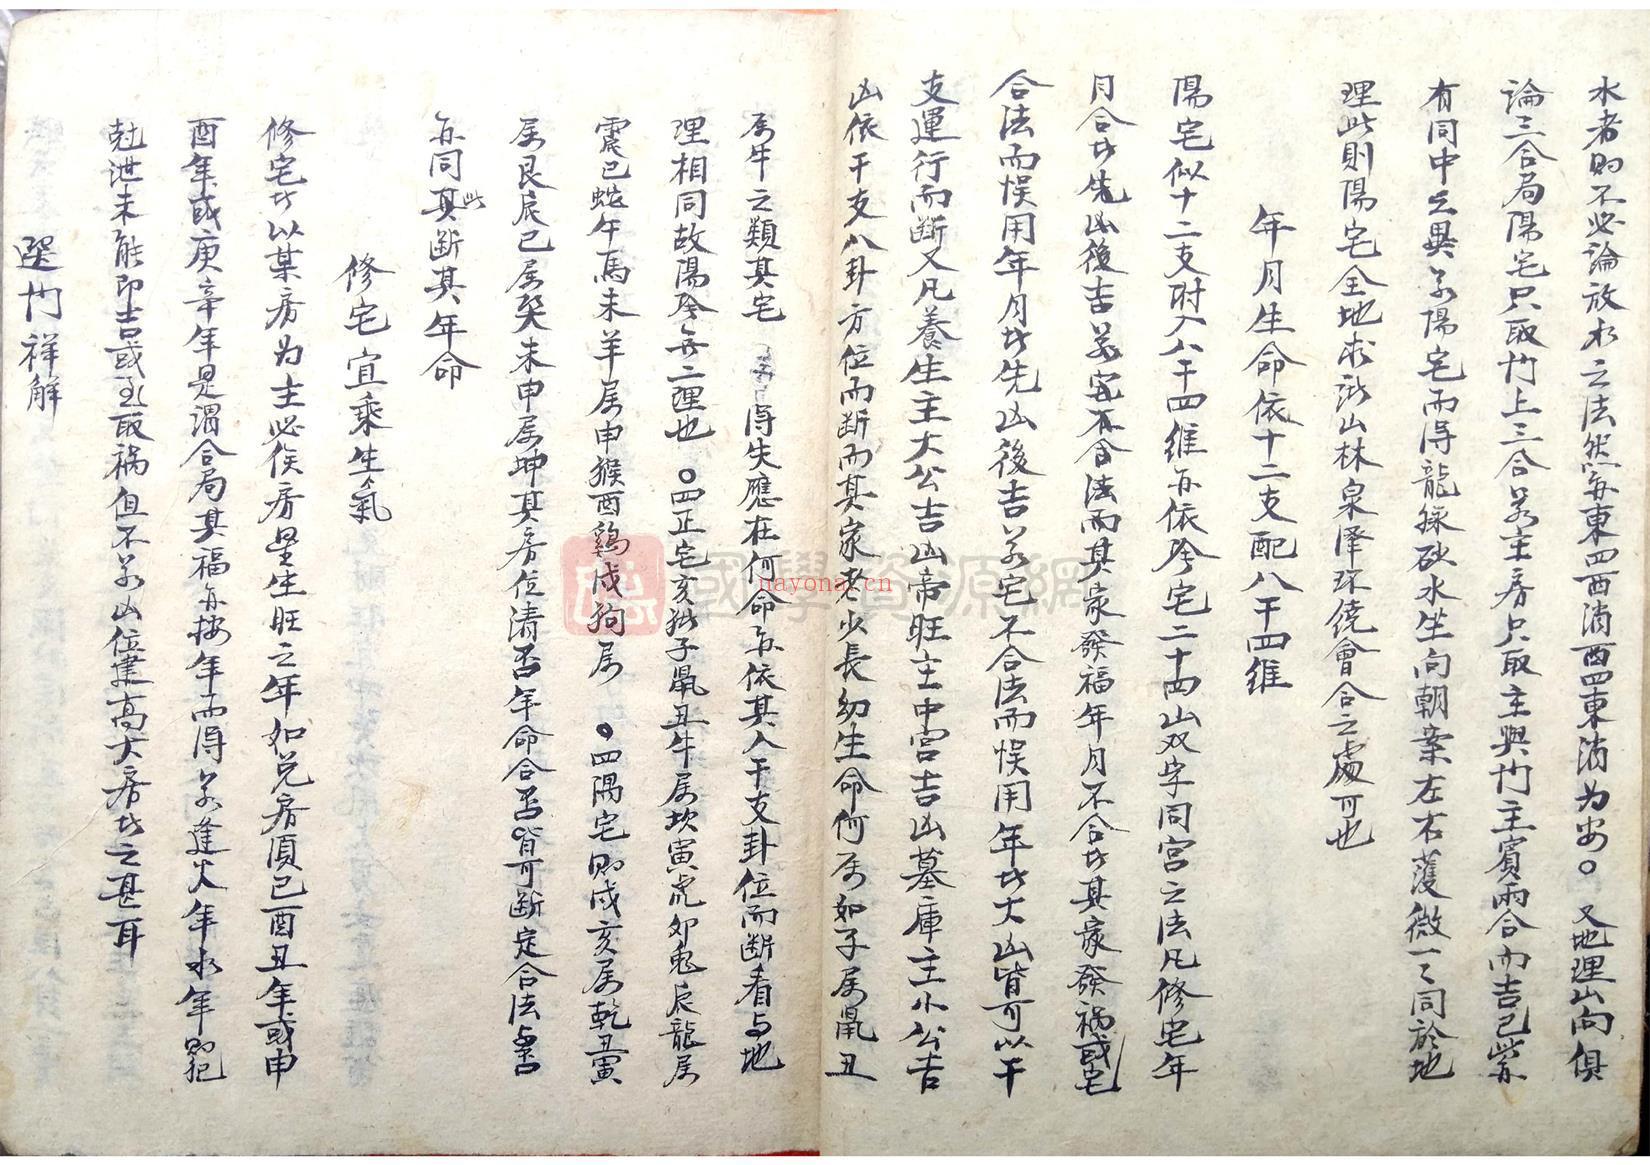 水者則不必論放水之法然寔東四西消西四東消为安。又地理山向俱
論三合局陽宅只取门上三合若主房只取主與门主賓兩合而吉已柴亦
有同中之異亦陽宅而得龍脉砂水坐向朝案左右護微一々同於地
理此則陽宅全地求諸山林泉澤环繞會合之處可也
年月生命依十二支配八干四維
陽宅似十二支附入八干四維亦依陰宅二十四山双字同宫之法凡修宅年
月合者先凶後吉若宅不合法而其家發福年月不合者其家發禍或宅
合法而悮用年月者先凶後吉若宅不合法而悮用年者大凶皆可以干
支運行而断又凡養生主大公吉凶帝旺主中宫吉凶墓庫主小公吉
凶依干支八卦方位而断而其家老少長幼生命何属如子属鼠丑
属牛之類其宅 得失應在何命亦依其人干支卦位而断看与地
理相同故陽陰无二理也。四正宅亥猪子鼠丑牛属坎寅虎卯兎辰龍属
震巳蛇午馬未羊属申猴酉鷄戌狗属 。四隅宅則戌亥属乾丑寅
属艮辰巳属巽未申属坤其房位清否年命合否皆可断定合法与否
亦同此其断其年命
修宅宜乘生氣
修宅者以某房为主必俟房星生旺之年如兑房須巳酉丑年或申
酉年或庚辛年是谓合局其福亦按年而得若逢火年水年則犯
尅泄未能即吉或至取禍但不若凶位建高大房者之甚耳
選门祥解
國學資源網
nayona.cn